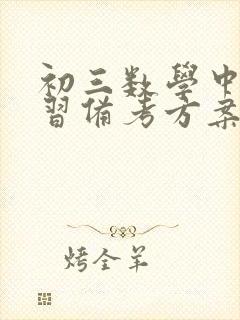 初三数學中
習備考方案
烤全羊